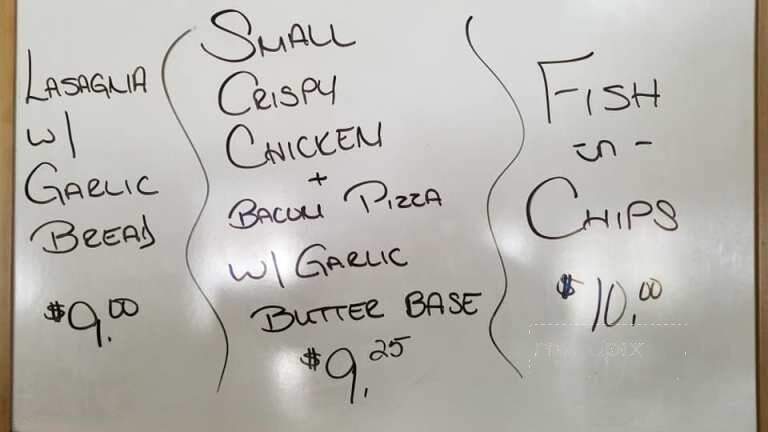 LASAGNIA
W/
GARLIC
BREAD
$9.00
SMALL
CRISPY
CHICKEN
+
BACON PIZZA
W/ GARLIC
BUTTER BASE
$9.25
FISH
-N-
CHIPS
$10.00